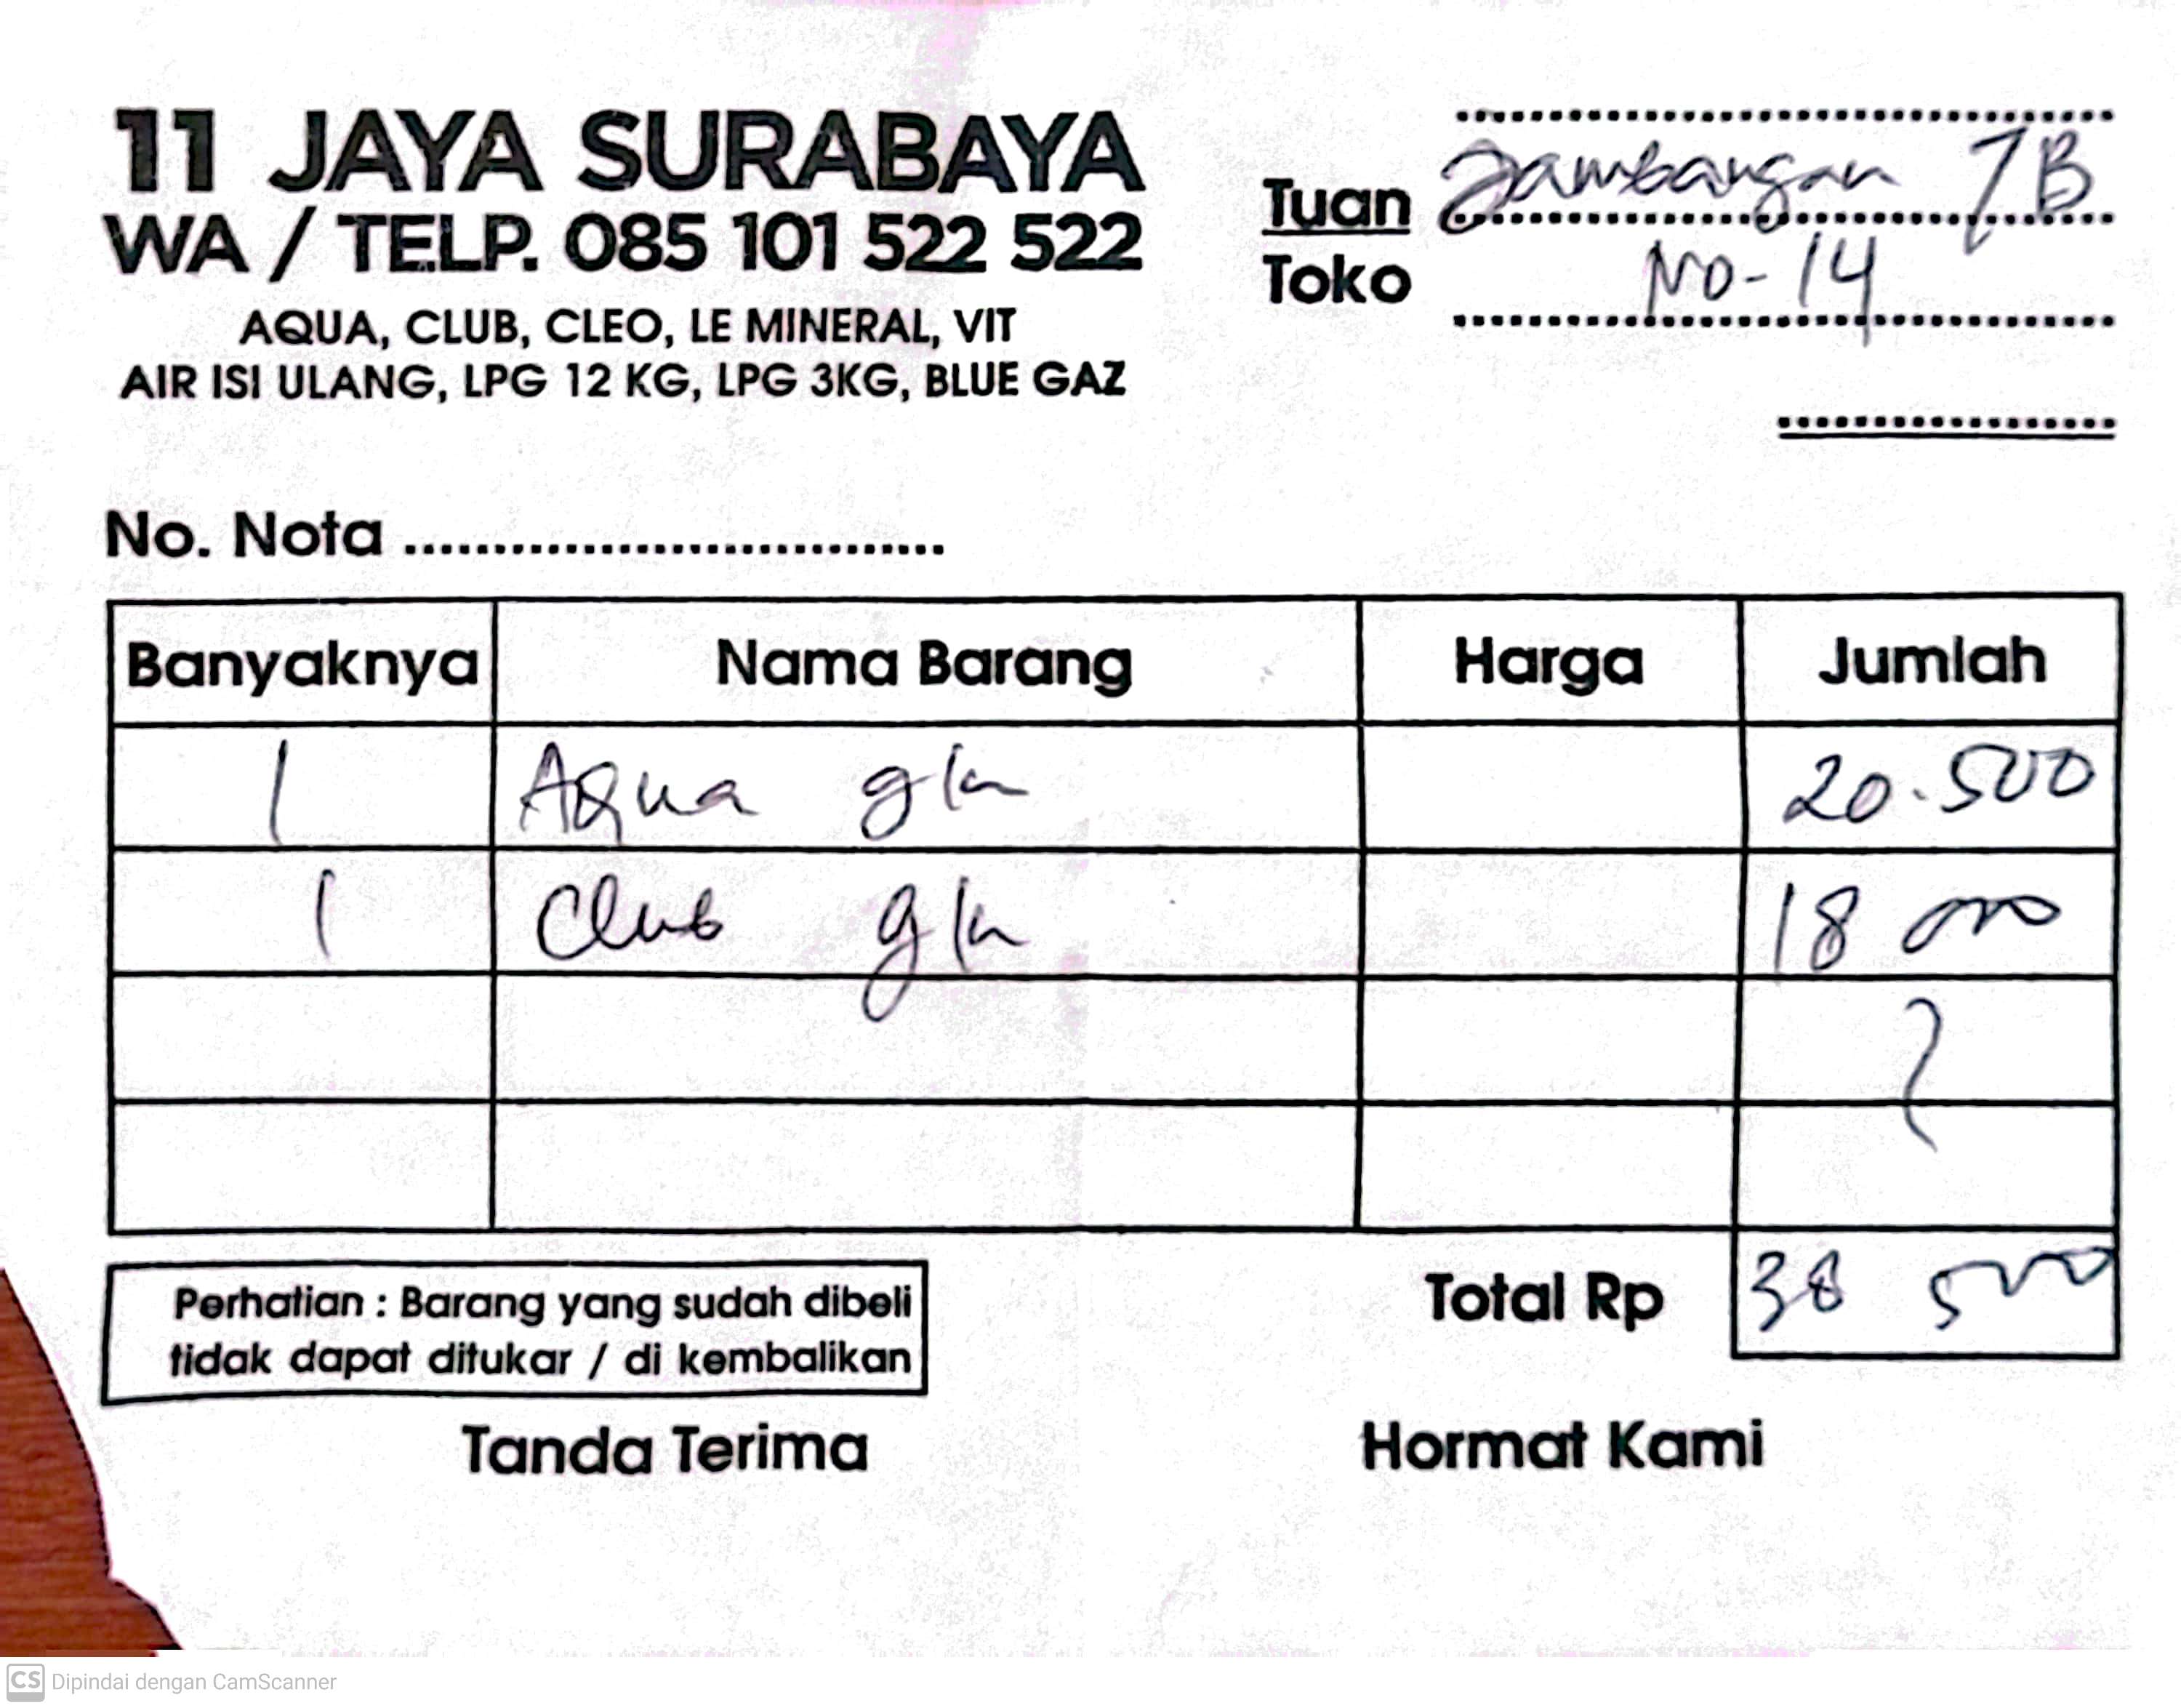 11 JAYA SURABAYA
WA / TELP. 085 101 522 522
AQUA, CLUB, CLEO, LE MINERAL, VIT
AIR ISI ULANG, LPG 12 KG, LPG 3KG, BLUE GAZ
Tuan Jambangan 7B
Toko No-14
No. Nota
Banyaknya Nama Barang Harga Jumlah
1 Aqua gln 20.500
1 Club gln 18 000
Total Rp 38 500
Perhatian : Barang yang sudah dibeli
tidak dapat ditukar / di kembalikan
Tanda Terima Hormat Kami
CS Dipindai dengan CamScanner